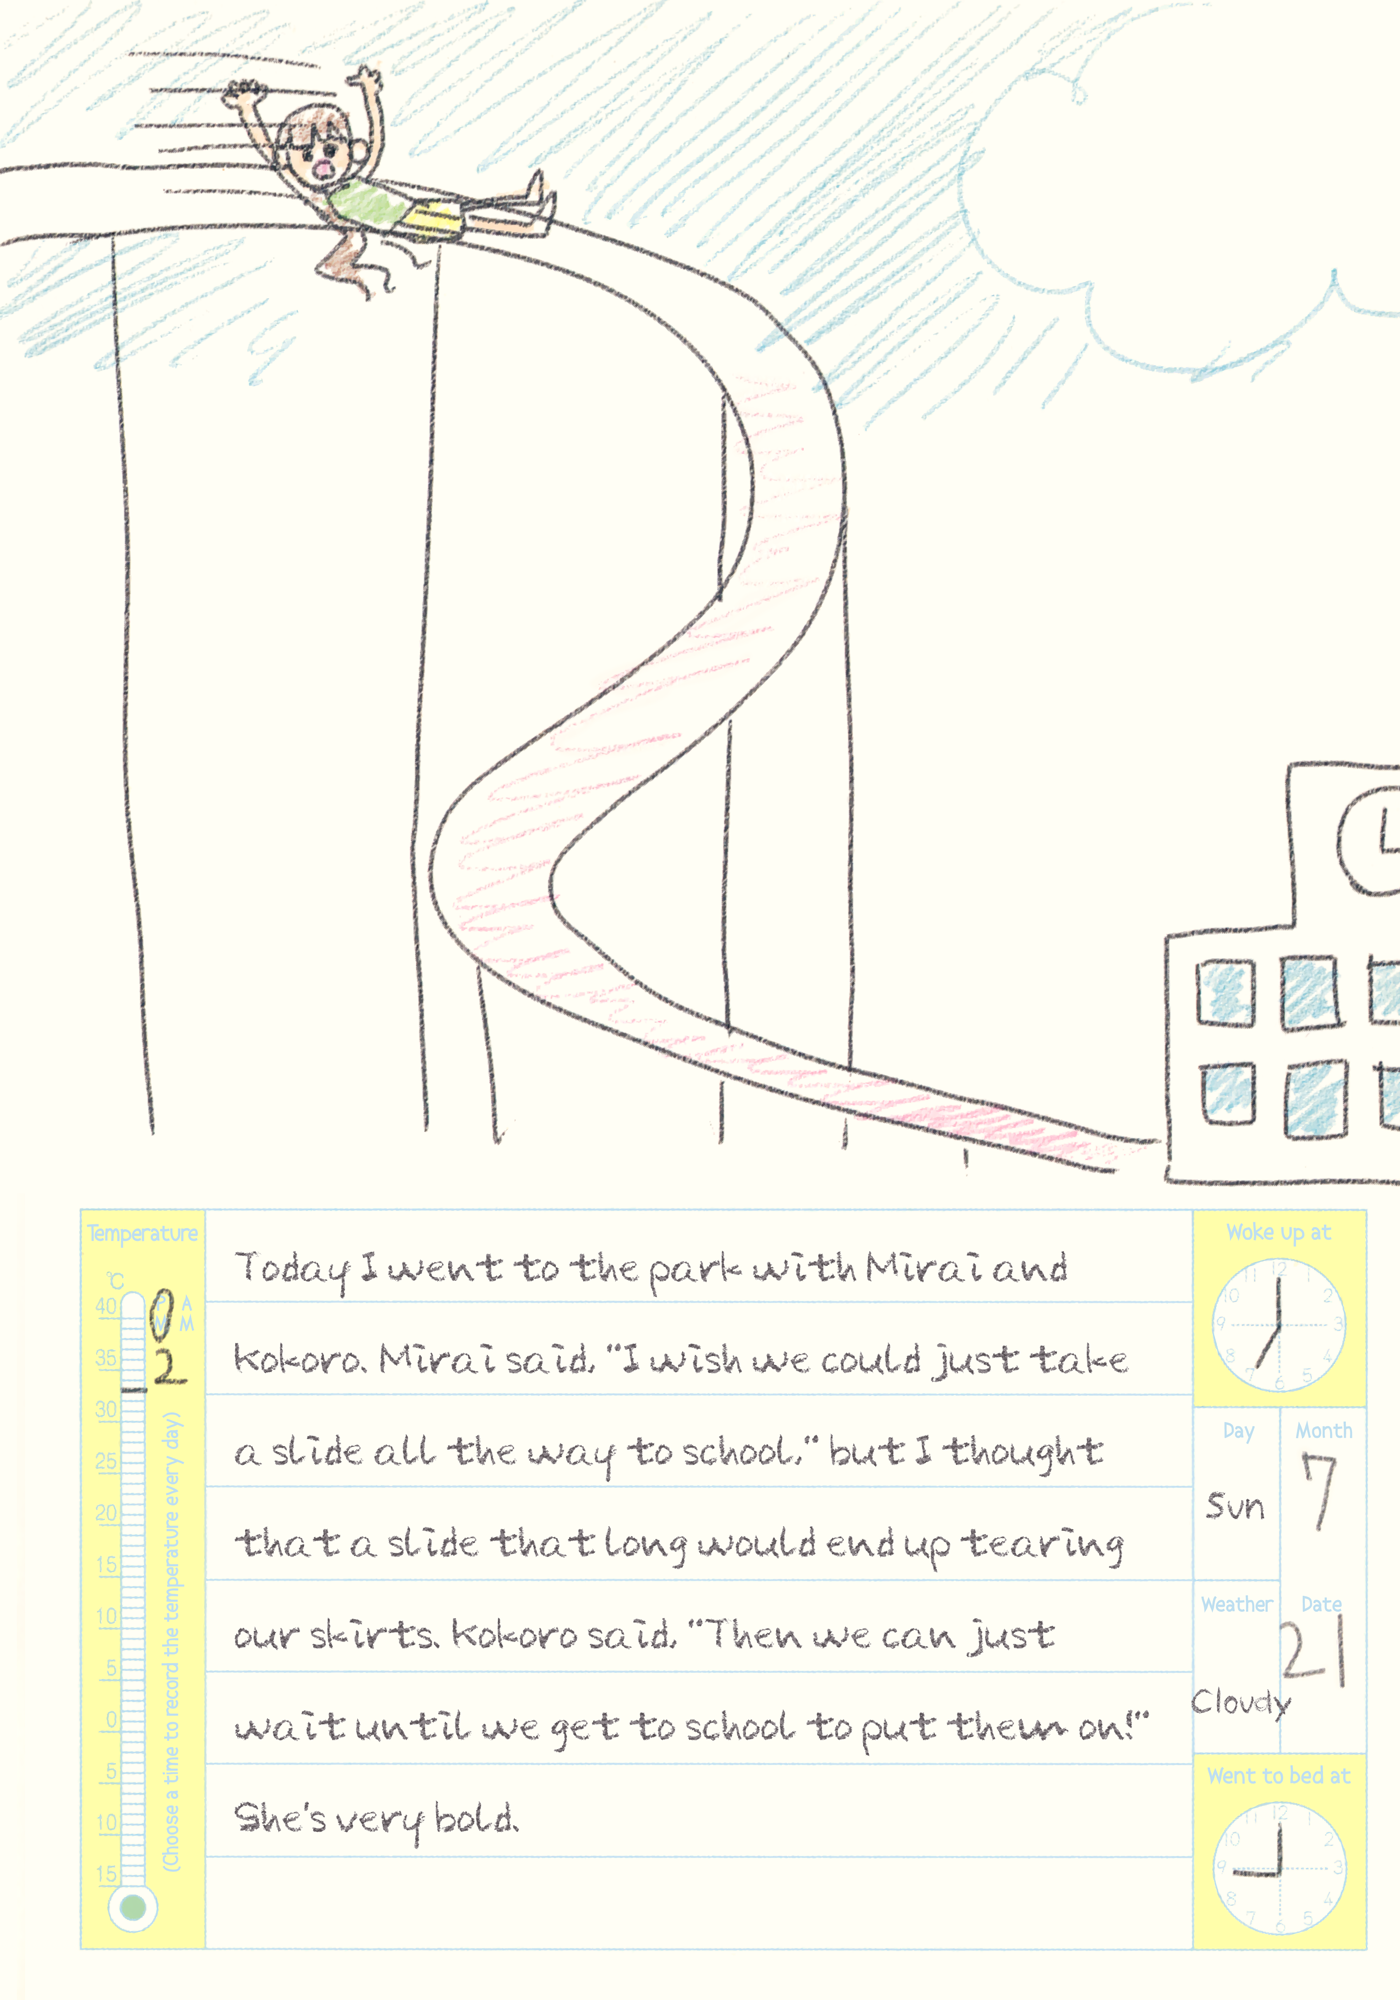 Temperature
°C
40
35
30
25
20
15
10
5
0
5
10
15
PM
AM
0
2
(Choose a time to record the temperature every day)
Today I went to the park with Mirai and
Kokoro. Mirai said, "I wish we could just take
a slide all the way to school," but I thought
that a slide that long would end up tearing
our skirts. Kokoro said, "Then we can just
wait until we get to school to put them on!"
She's very bold.
Woke up at
12
1
2
3
4
5
6
7
8
9
10
11
Day
Sun
Month
7
Weather
Cloudy
Date
21
Went to bed at
12
1
2
3
4
5
6
7
8
9
10
11